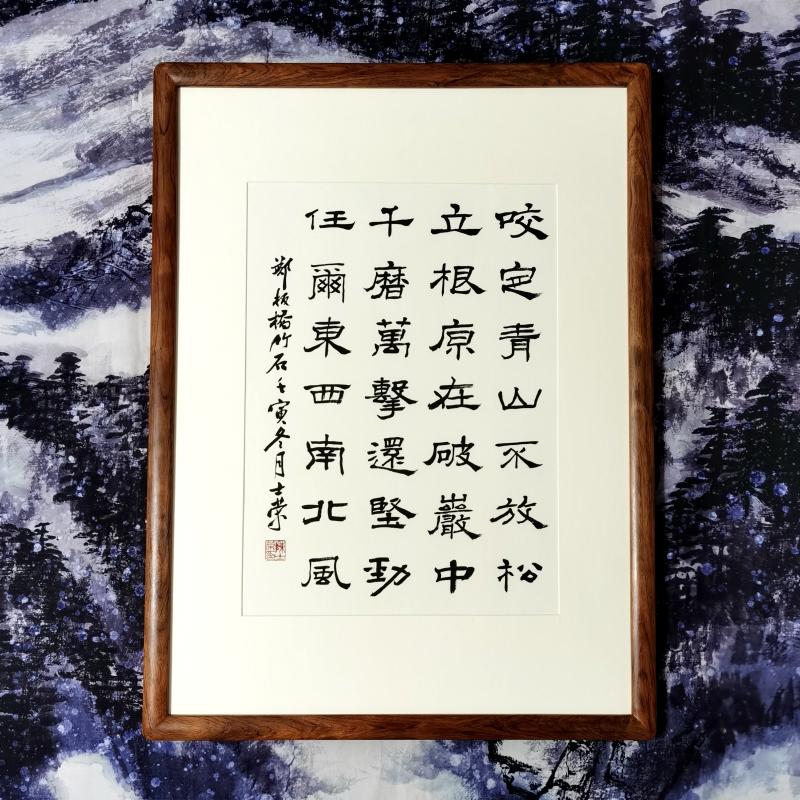 咬定青山不放松
立根原在破巖中
千磨萬擊還堅勁
任爾東西南北風
鄭板橋竹石壬寅冬月士榮